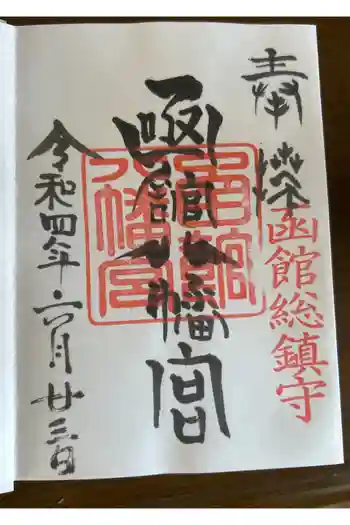 奉拝
函館総鎮守
函館八幡宮
函館八幡宮
令和四年六月廿三日